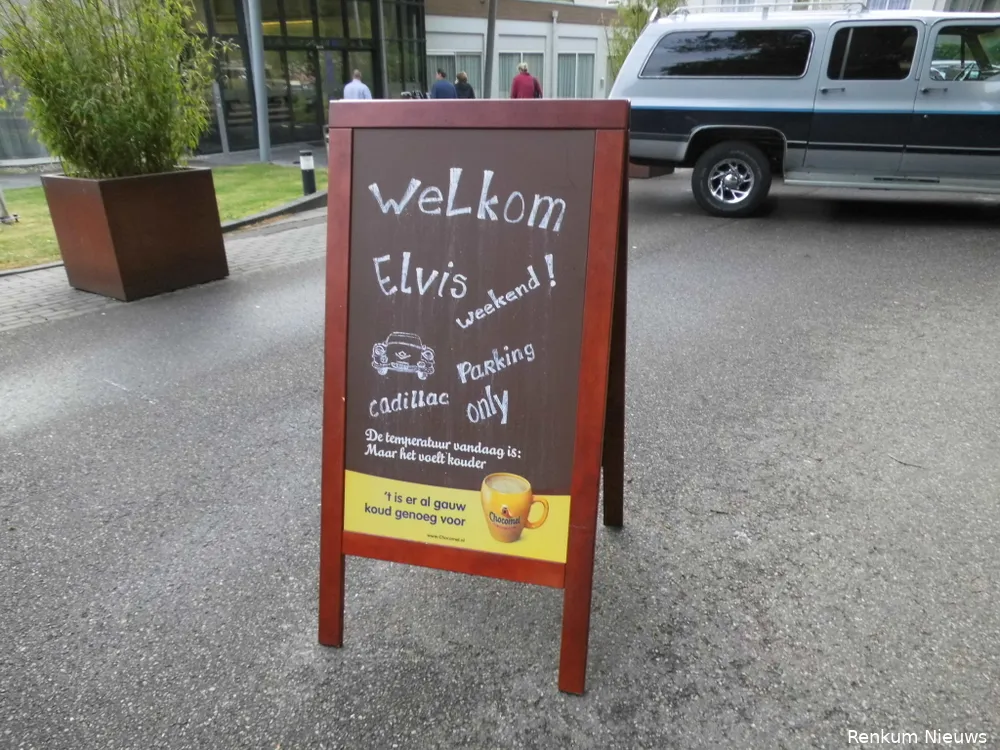 Welkom
Elvis
weekend!
Parking
cadillac only
De temperatuur vandaag is:
Maar het voelt kouder
't is er al gauw
koud genoeg voor
Chocomel
www.Chocomel.nl
Renkum Nieuws